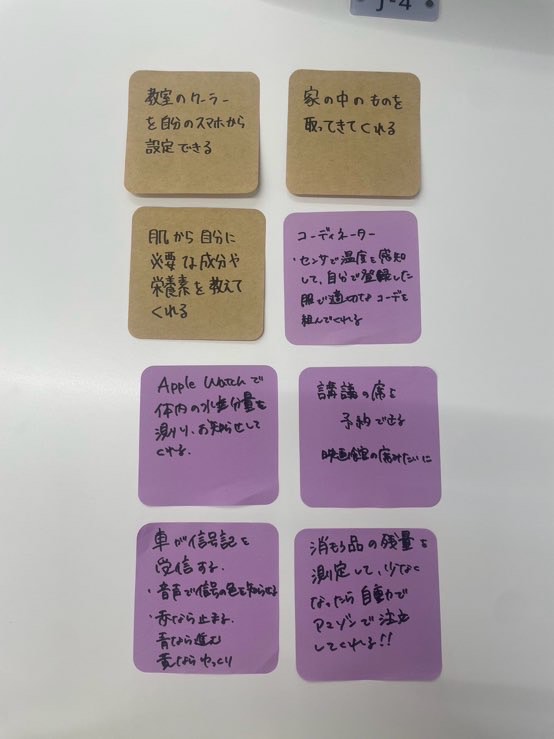 J-4
教室のクーラー
を自分のスマホから
設定できる
家の中のものを
取ってきてくれる
肌から自分に
必要な成分や
栄養素を教えて
くれる
コーディネーター
・センサで温度を感知
して、自分で登録した
服で適切なコーデを
組んでくれる
Apple Watchで
体内の水分量を
測り、お知らせして
くれる.
講議の席を
予約できる
映画館の席みたいに
車が信号記を
受信する.
・音声で信号の色を知らせる
・赤なら止まる.
青なら進む
黄ならゆっくり
消もう品の残量を
測定して、少なく
なったら自動で
アマゾンで注文
してくれる!!